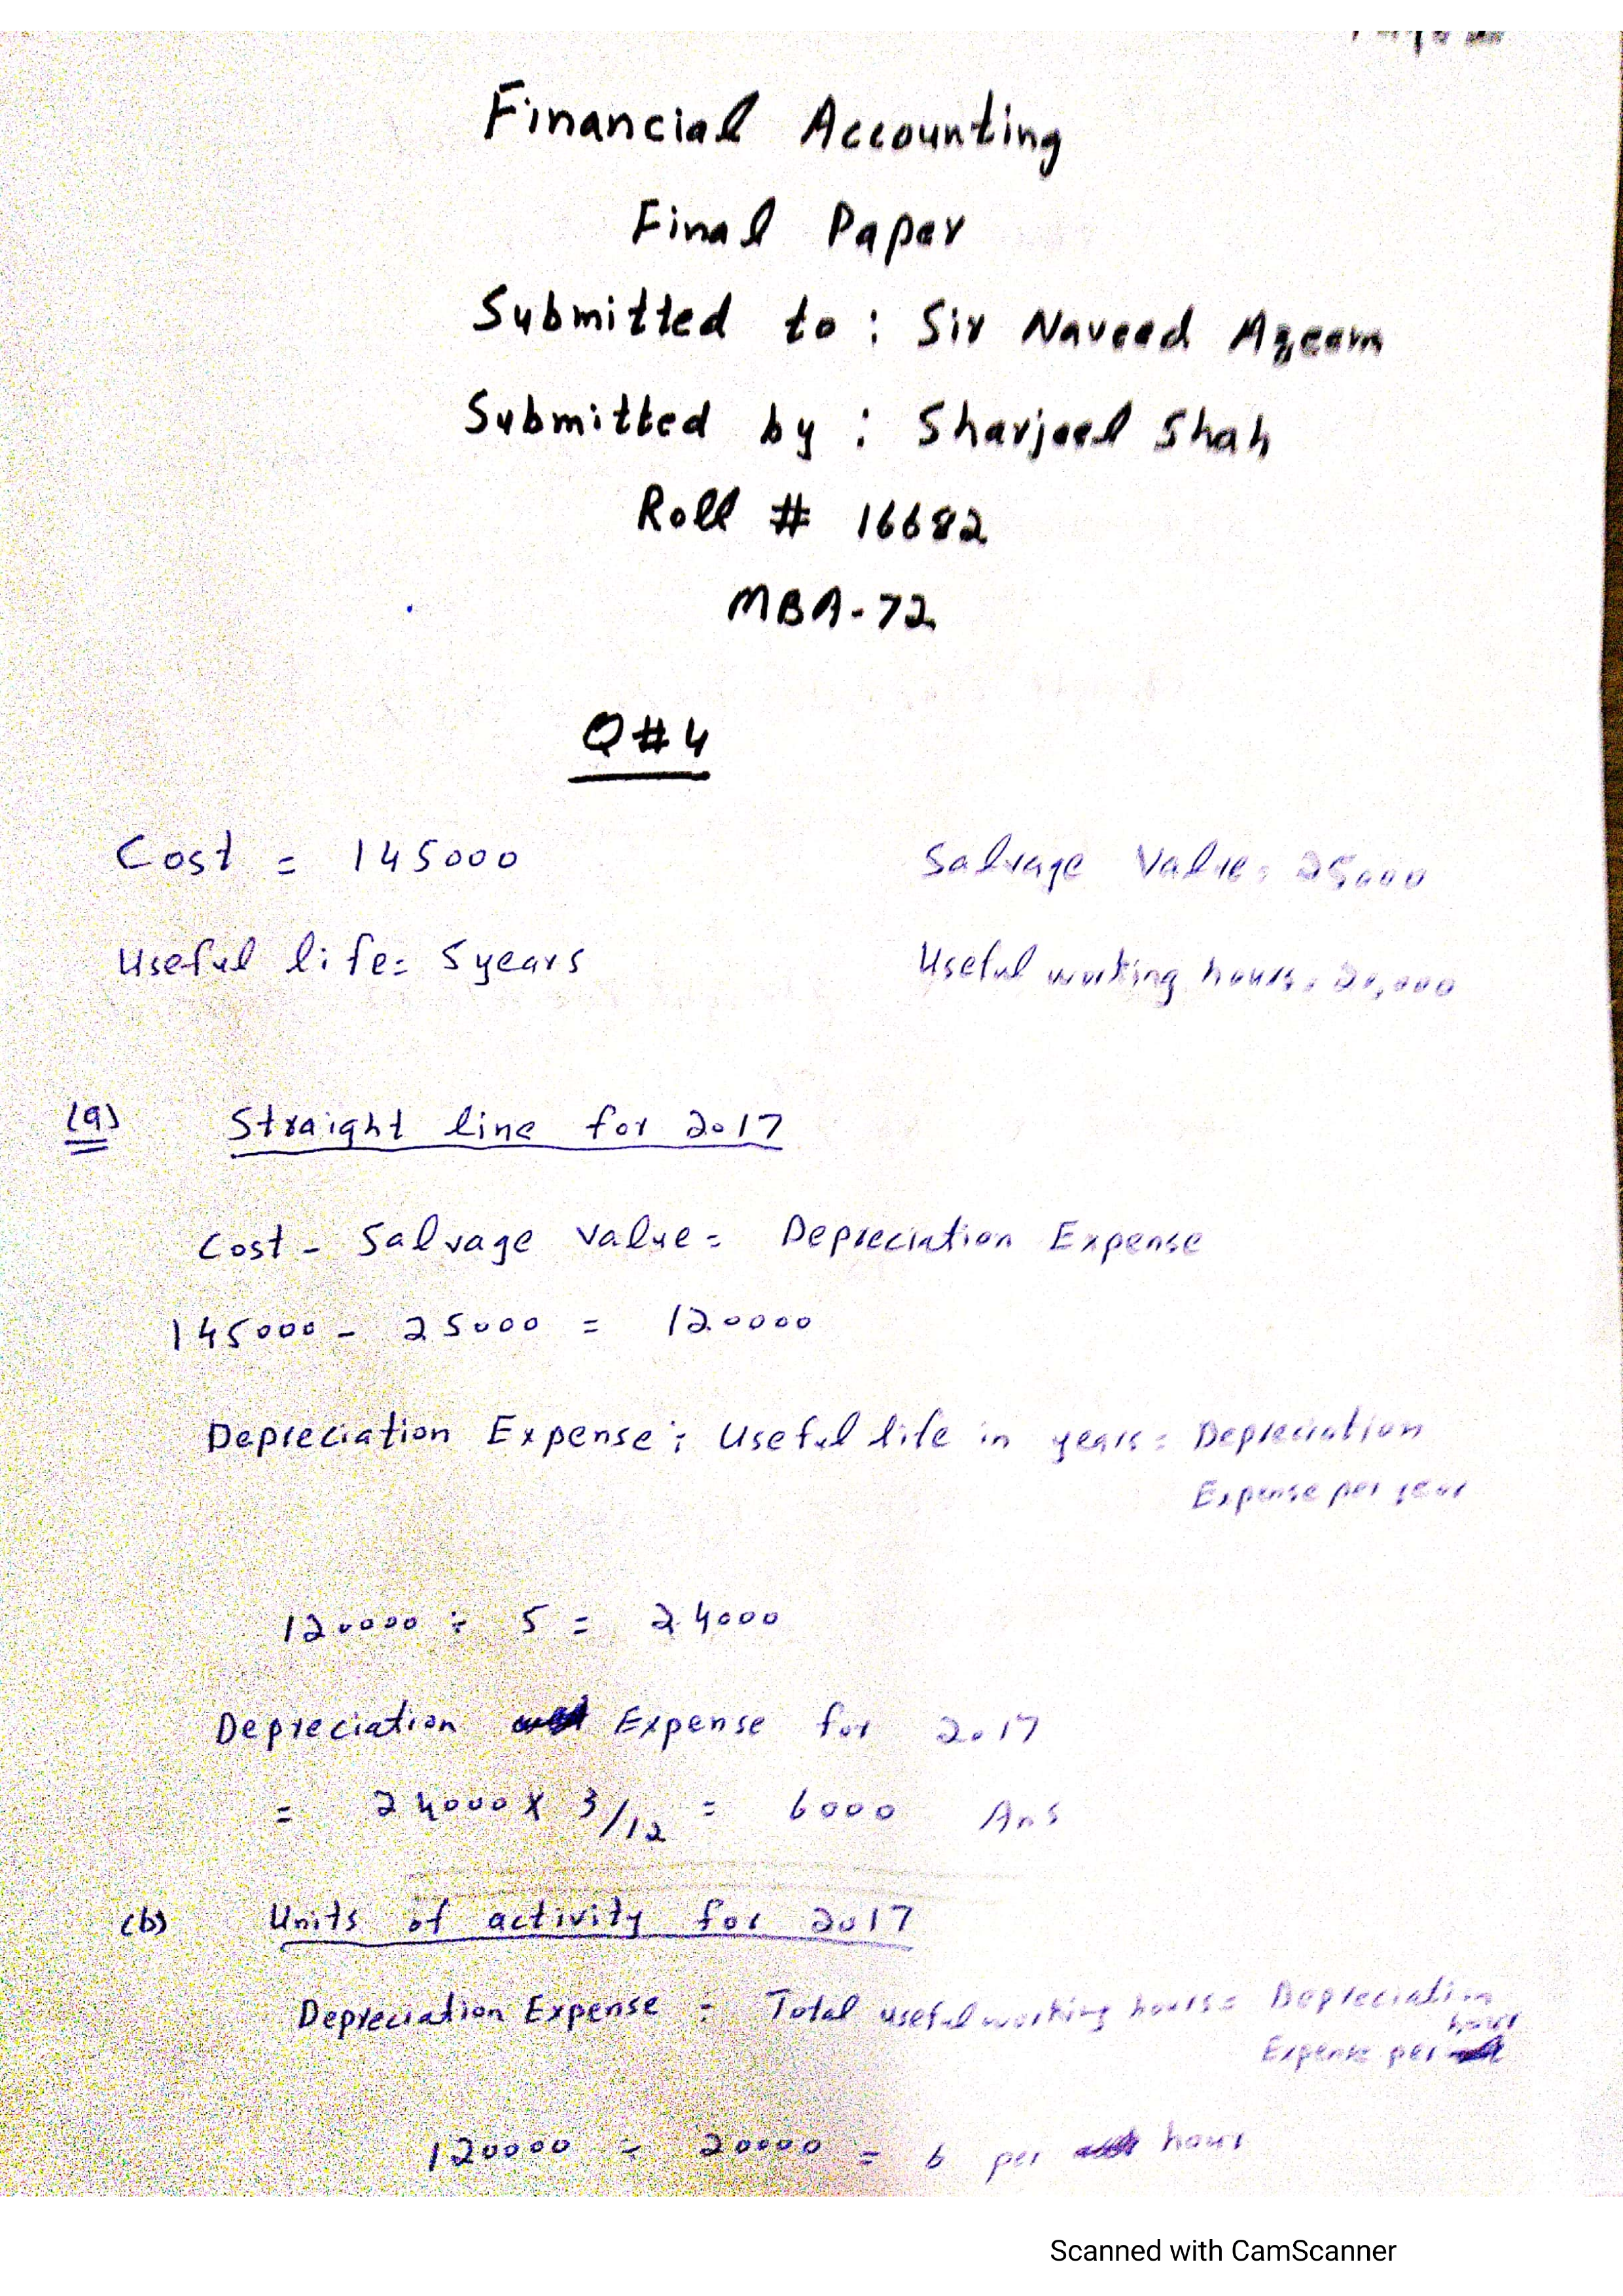 Financial Accounting
Final Paper
Submitted to : Sir Naveed Azeem
Submitted by : Sharjeel Shah
Roll # 16682
MBA-72
Q#4
Cost = 145000 Salvage Value = 25000
Useful life = 5 years Useful working hours = 20,000
(a) Straight line for 2017
Cost - Salvage Value = Depreciation Expense
145000 - 25000 = 120000
Depreciation Expense ÷ Useful life in years = Depreciation
Expense per year
120000 ÷ 5 = 24000
Depreciation Expense for 2017
= 24000 x 3/12 = 6000 Ans
(b) Units of activity for 2017
Depreciation Expense ÷ Total useful working hours = Depreciation
Expense per hour
120000 ÷ 20000 = 6 per hour
Scanned with CamScanner